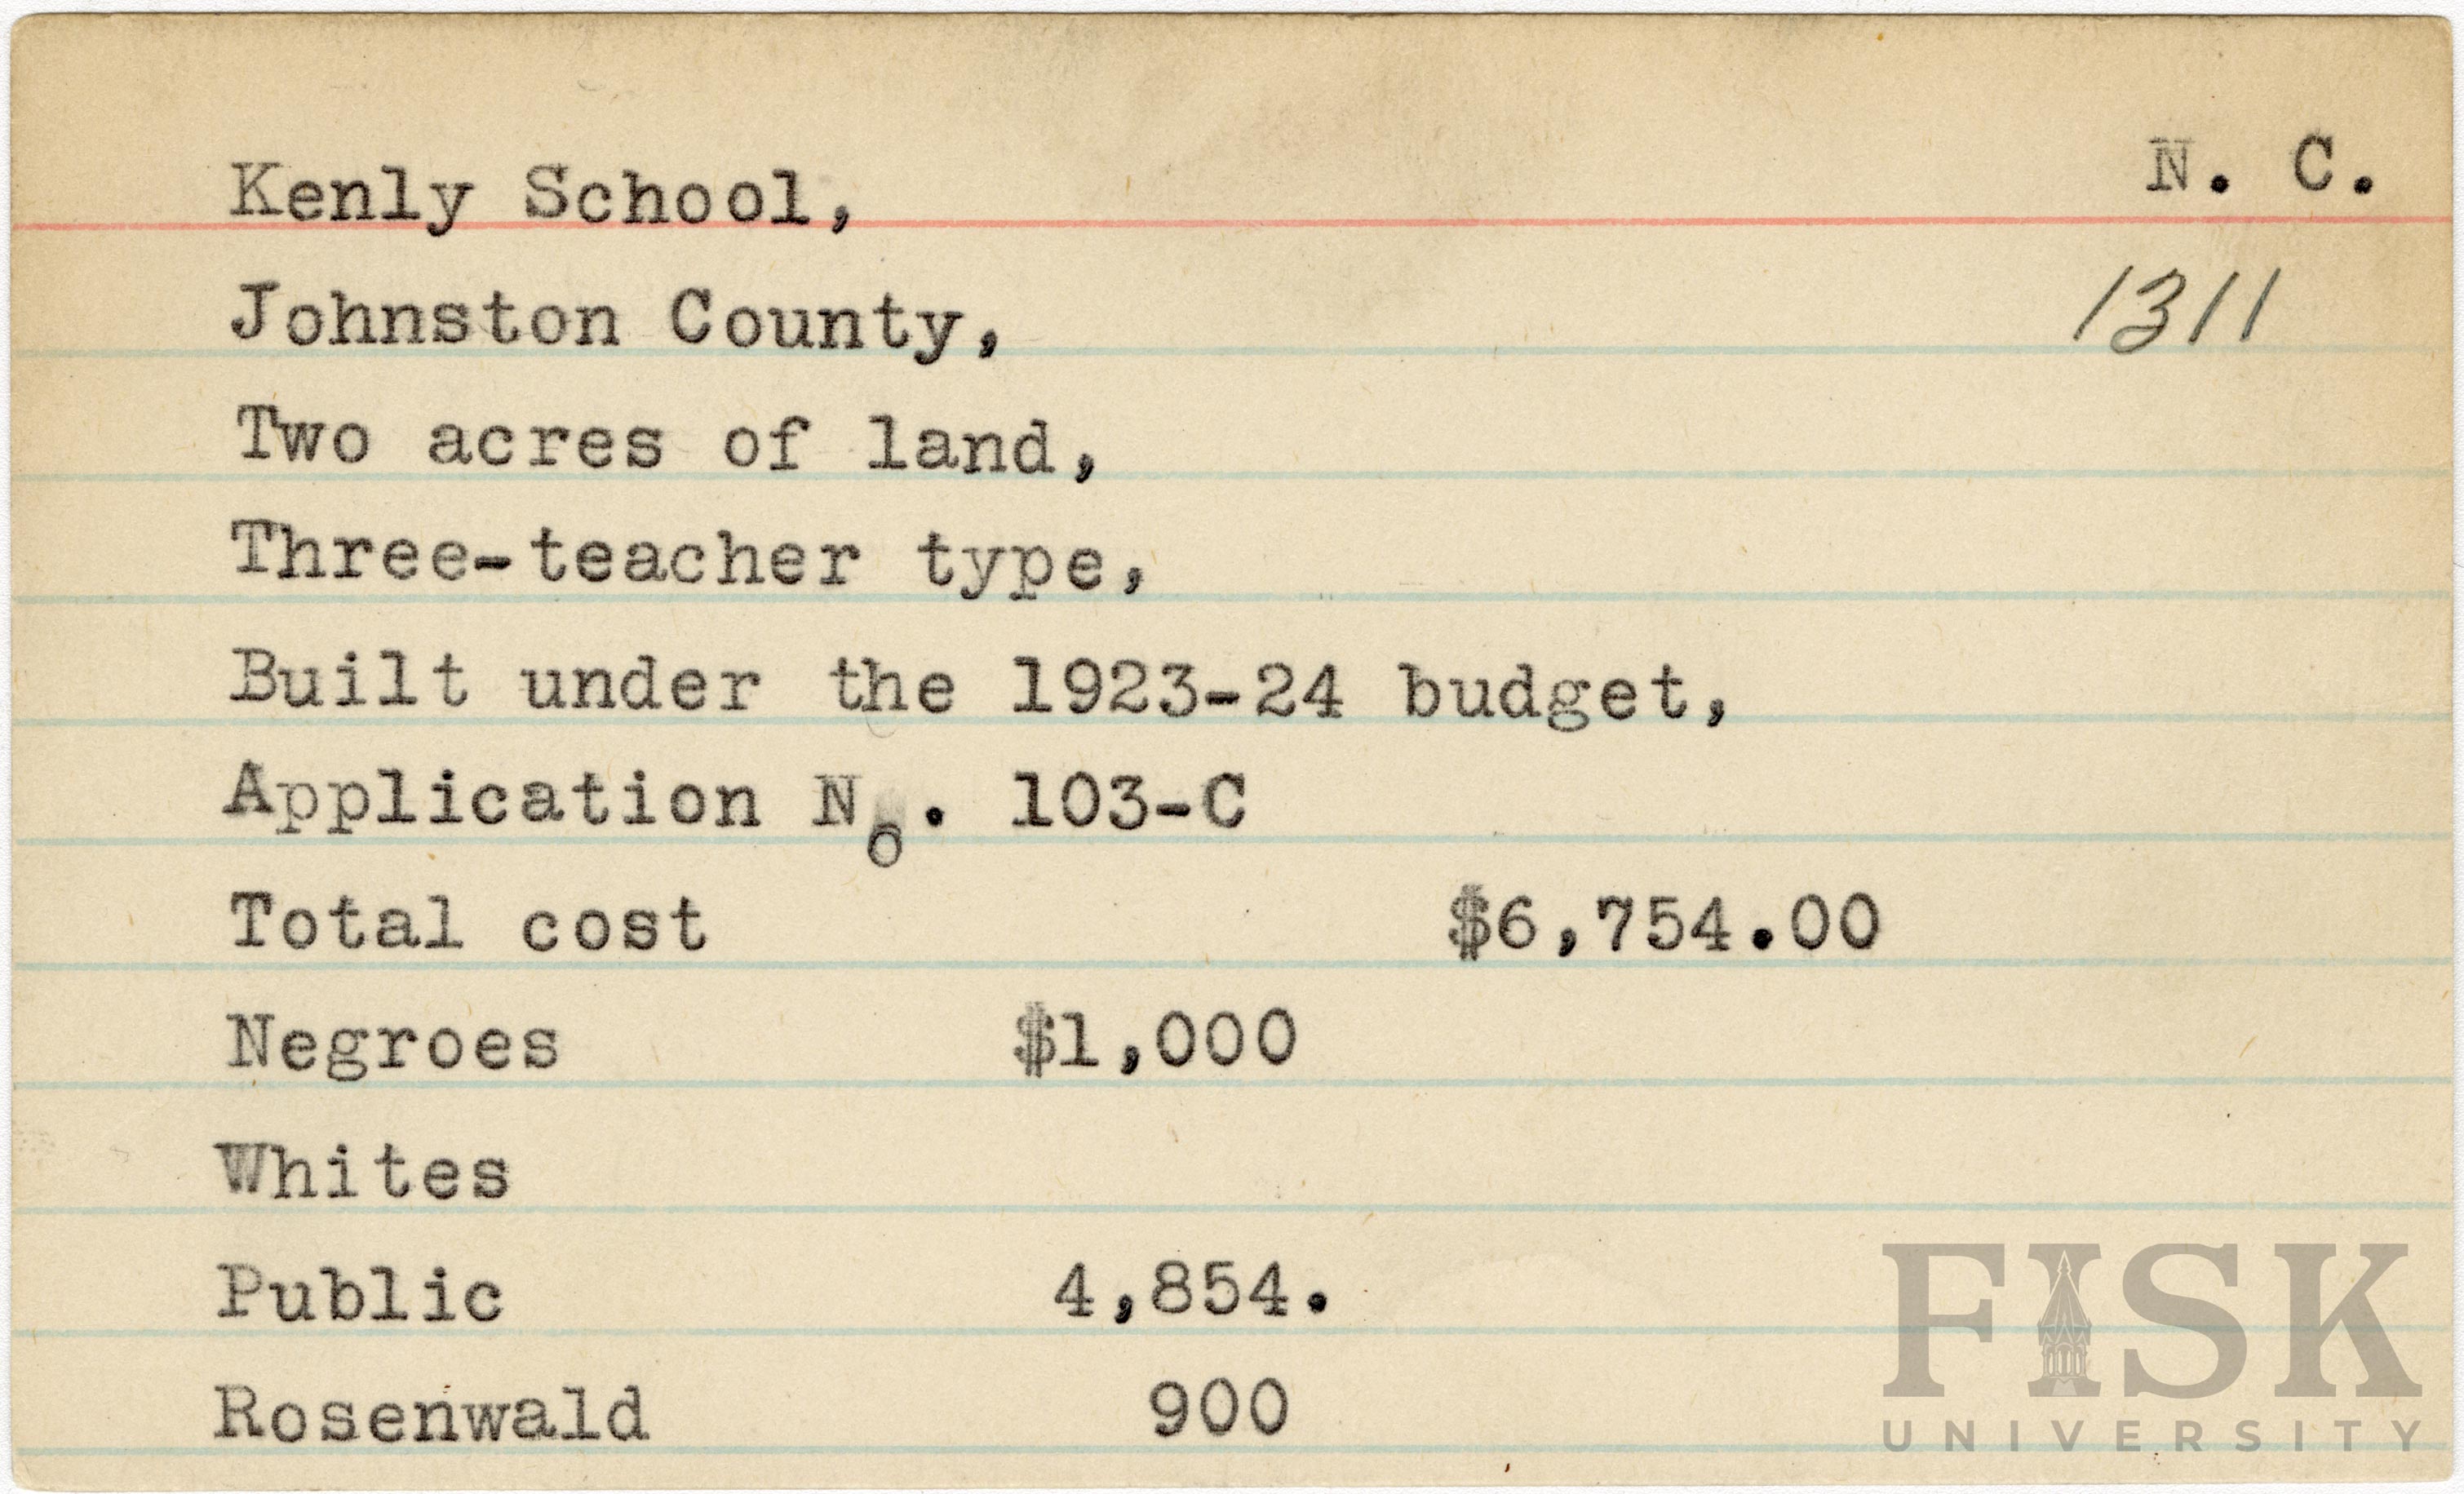 N. C.
Kenly School,
1311
Johnston County,
Two acres of land,
Three-teacher type,
Built under the 1923-24 budget,
Application No. 103-C
Total cost $6,754.00
Negroes $1,000
Whites
Public 4,854.
Rosenwald 900
FISK
UNIVERSITY